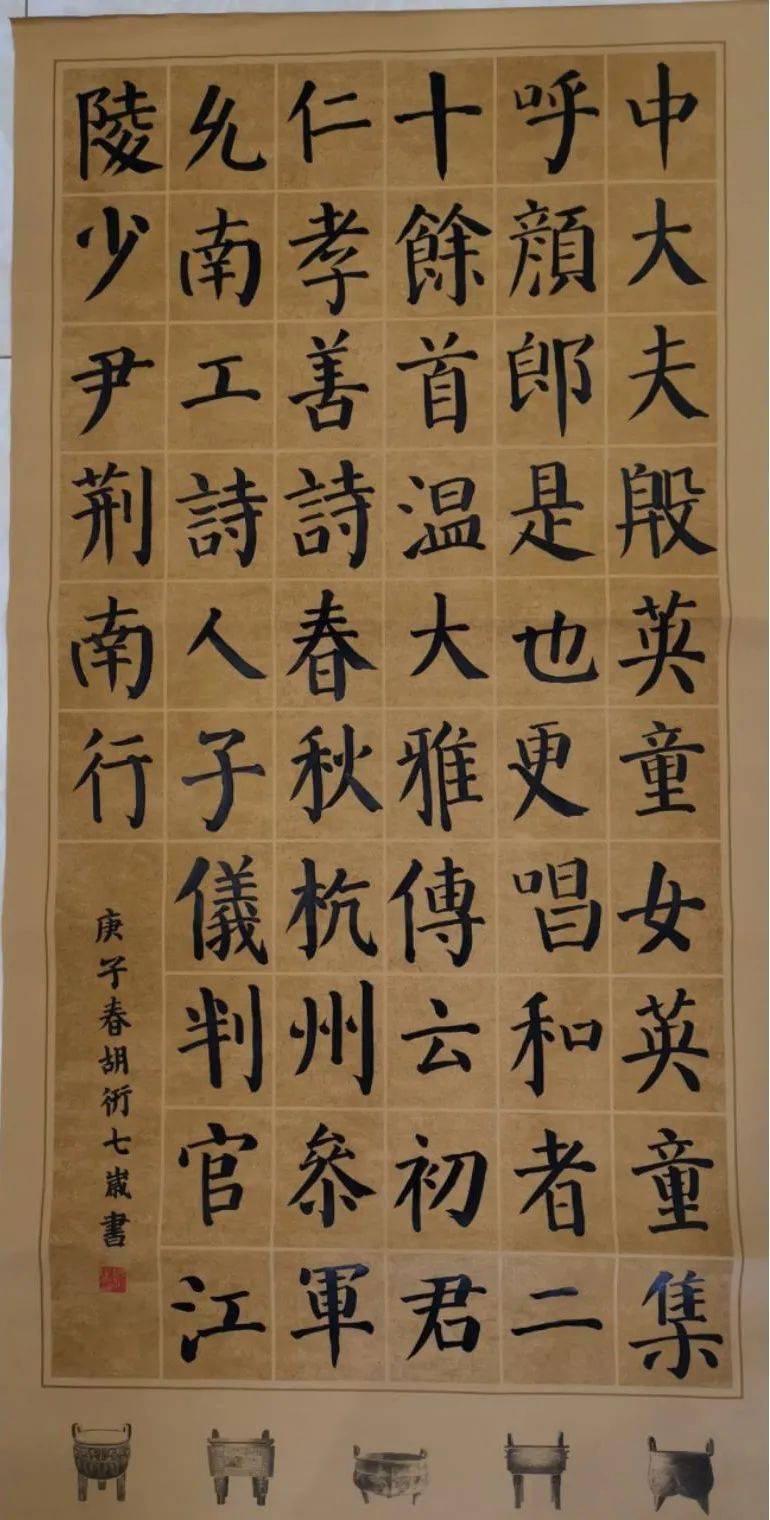 中大夫殷英童女英童集
呼顔郎是也更唱和者二
十餘首温大雅傳云初君
仁孝善詩春秋杭州叅軍
允南工詩人子儀判官江
陵少尹荆南行
庚子春胡術七歲書